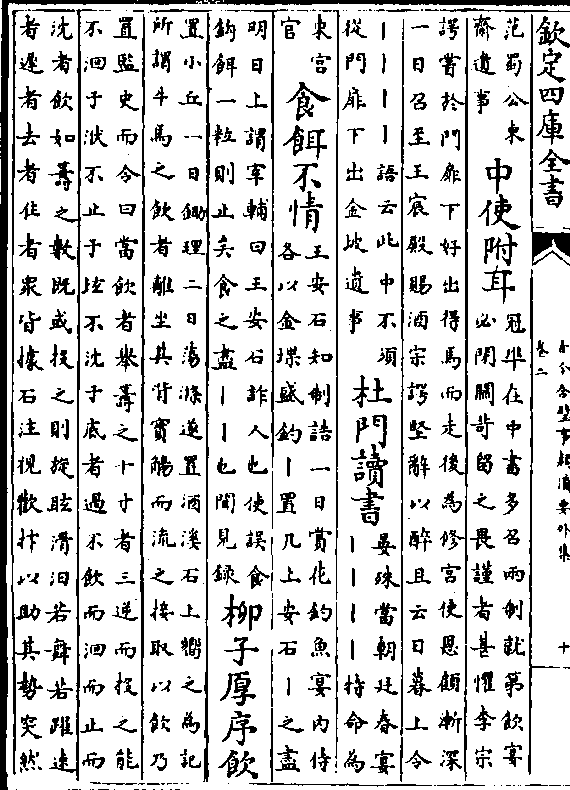 欽定四庫全書
古今合璧事類備要外集
卷二
十
范蜀公東
齋遺事
中使附耳
冠準在中書多召兩制就第飲宴
必閉關苛留之畏謹者甚懼李宗
諤嘗於門扉下好出得馬而走後為修宮使恩顧漸深
一日召至玉宸殿賜酒宗諤堅辭以醉且云日暮上令
丨丨丨丨語云此中不須
從門扉下出金坡遺事
杜門讀書
晏殊當朝廷春宴
丨丨丨丨特命為
東宮
官
食餌不情
王安石知制誥一日賞花釣魚宴內侍
各以金楪盛釣丨置几上安石丨之盡
明日上謂宰輔曰王安石詐人也使誤食
釣餌一粒則止矣食之盡丨丨也聞見録
柳子厚序飲
置小丘一日鋤理二日蕩滌遂置酒溪石上嚮之為記
所謂牛馬之飲者離坐其背實觴而流之接取以飲乃
置監史而令曰當飲者舉籌之十寸者三逆而投之能
不洄于洑不止于坻不沈于底者過不飲而洄而止而
沈者飲如籌之數既或投之則旋眩滑汨若舞若躍速
者遲者去者住者衆皆據石注視歡抃以助其勢突然